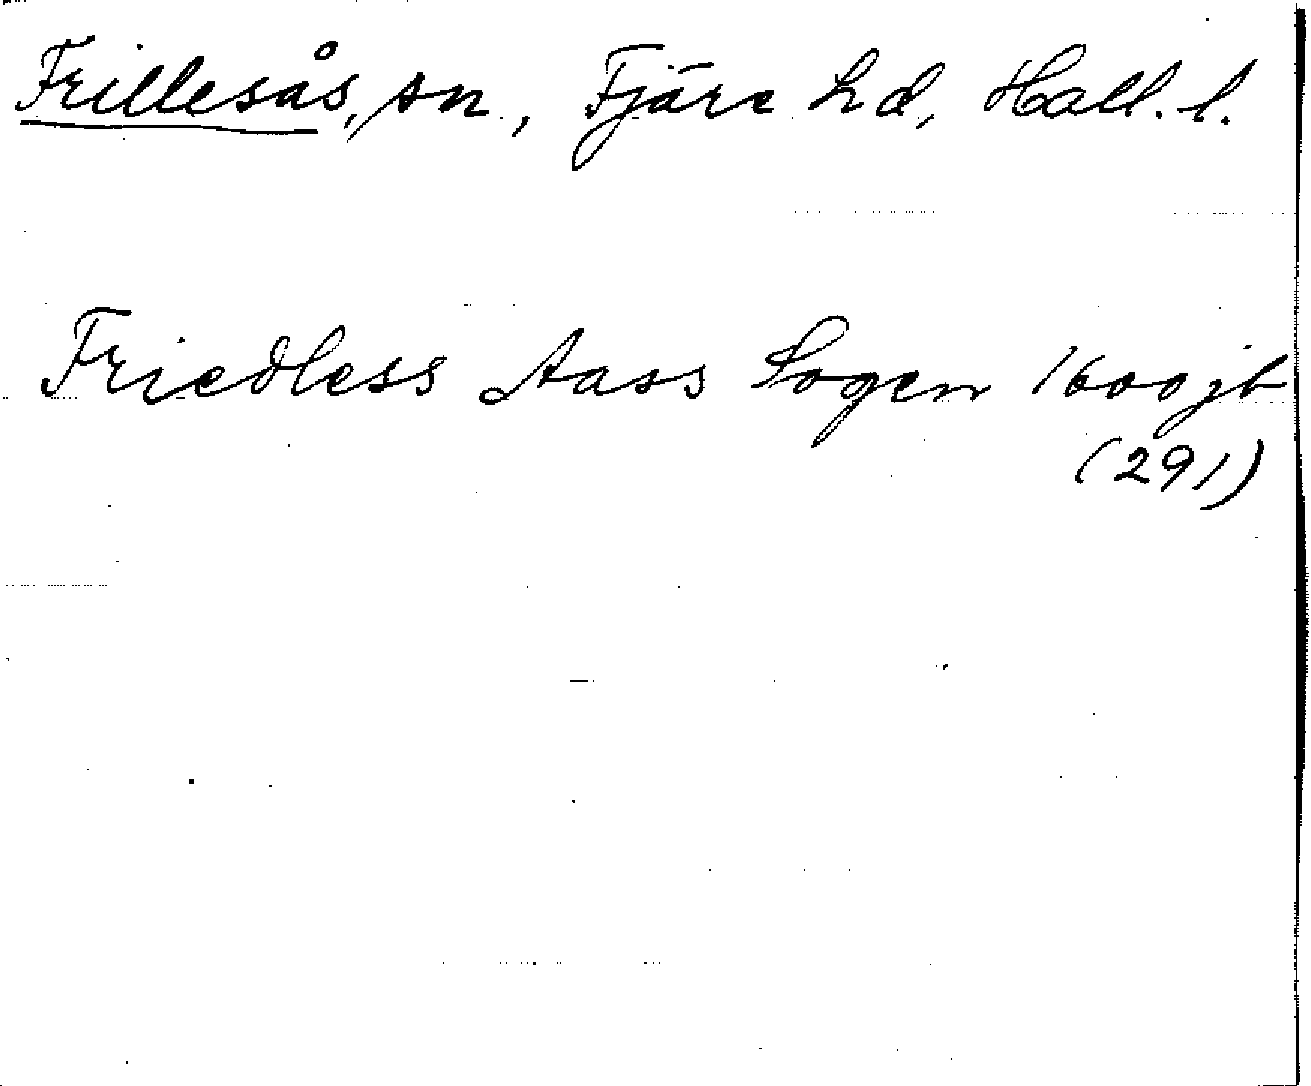 Frillesås, sn., Fjäre hd, Hall. l.
Friedless Aass Sogen 1600 jb
(291)